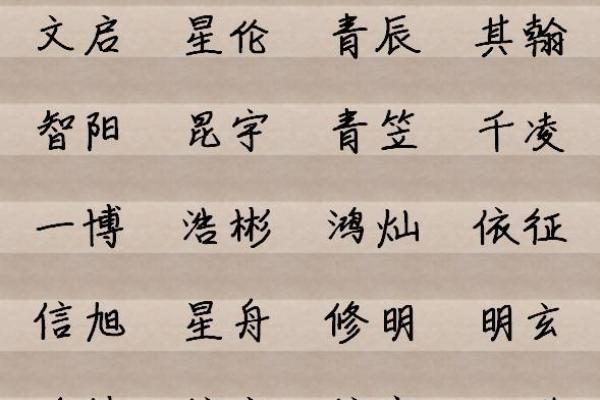 文启 星伦 青辰 其翰
智阳 昆宇 青笠 千凌
一博 浩彬 鸿灿 依征
信旭 星舟 修明 明玄